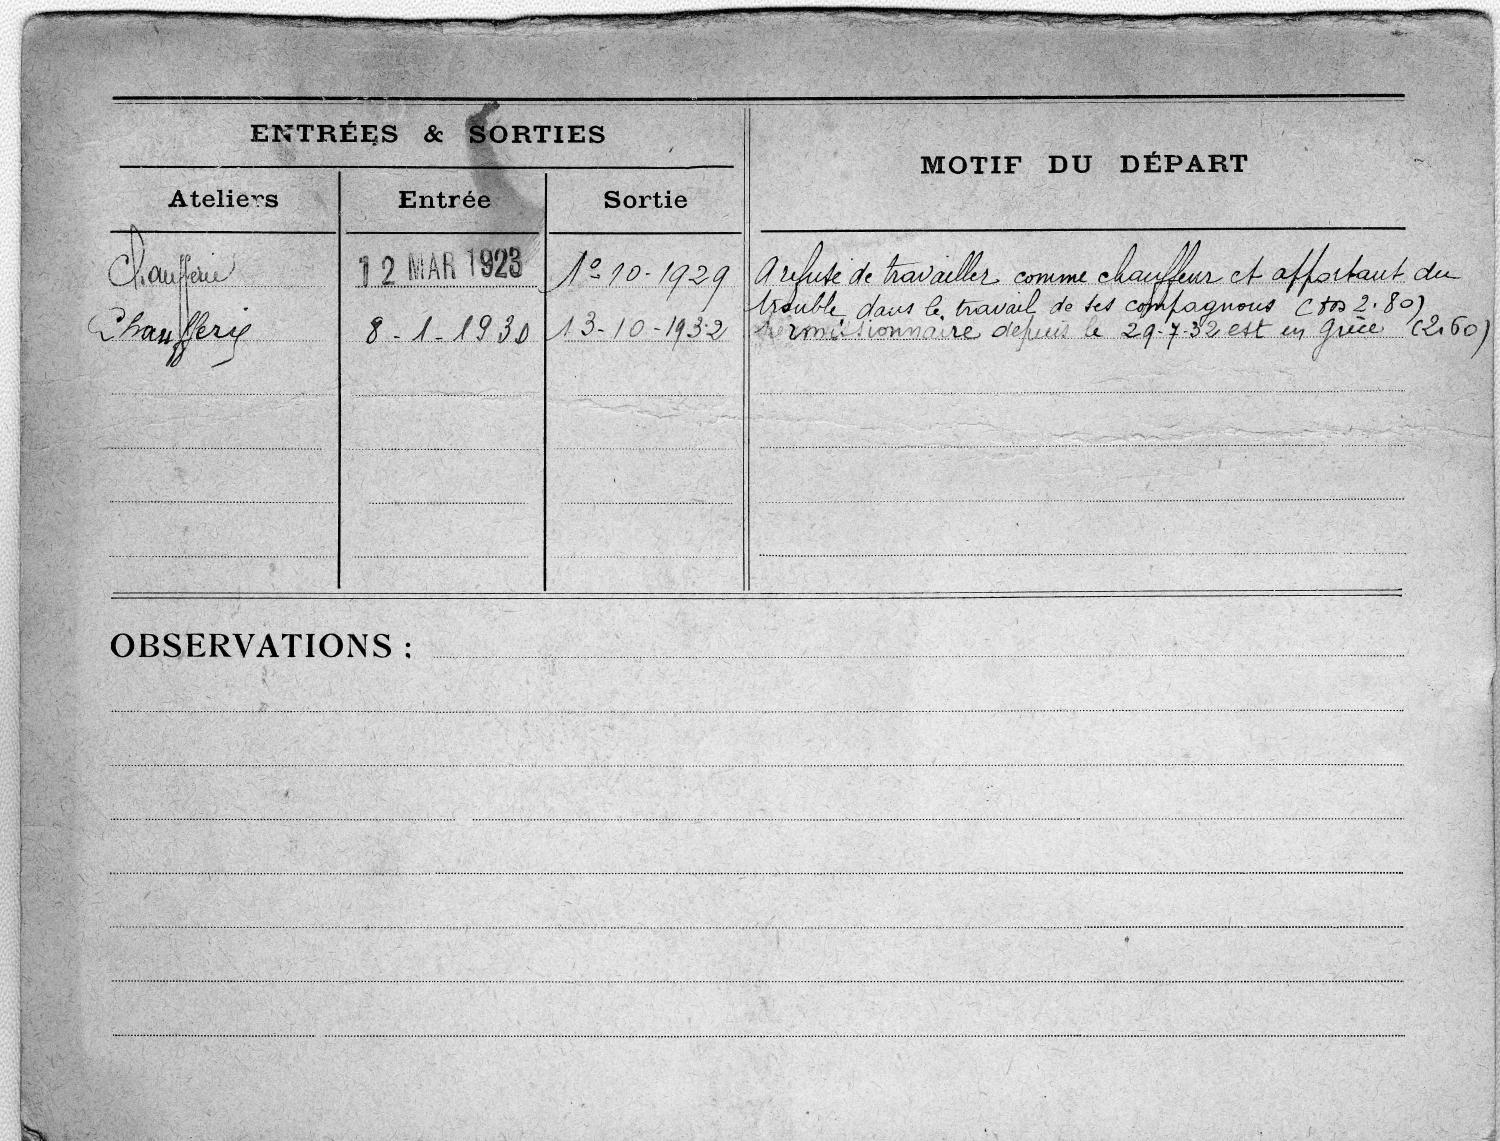 ENTRÉES & SORTIES
MOTIF DU DÉPART
Ateliers Entrée Sortie
Chaufferie 12 MAR 1923 1º-10-1929 A refusé de travailler comme chauffeur et apportant du
trouble dans le travail de ses compagnons (2.80)
Chaufferie 8-1-1930 13-10-1932 Permissionnaire depuis le 29-7-32 est en Grèce (2.60)
OBSERVATIONS :